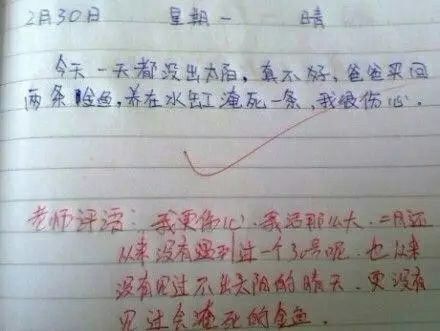 2月30日 星期一 晴
今天一天都没出太阳，真不好，爸爸买回
两条金鱼，养在水缸淹死一条，我很伤心．
老师评语：我更伤心．我活那么大．二月还
从来没有遇到过一个30号呢．也从来
没有见过不出太阳的晴天．更没有
见过会淹死的金鱼．